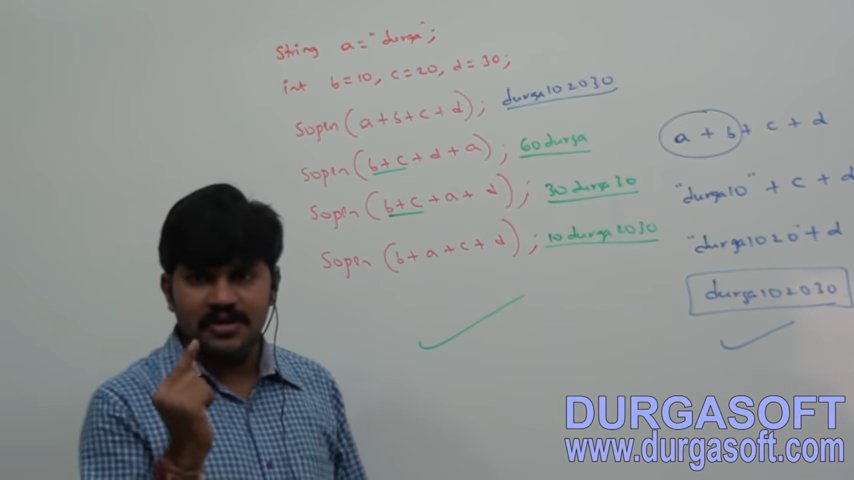 String a="durga";
int b=10, c=20, d=30;
Sopln(a+b+c+d); durga102030
Sopln(b+c+d+a); 60durga
Sopln(b+c+a+d); 30durga30
Sopln(b+a+c+d); 10durga2030
a + b + c + d
"durga10" + c + d
"durga1020" + d
durga102030
DURGASOFT
www.durgasoft.com